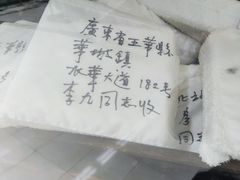 廣東省五華縣
華城鎮
水華大道182号
李九同志收